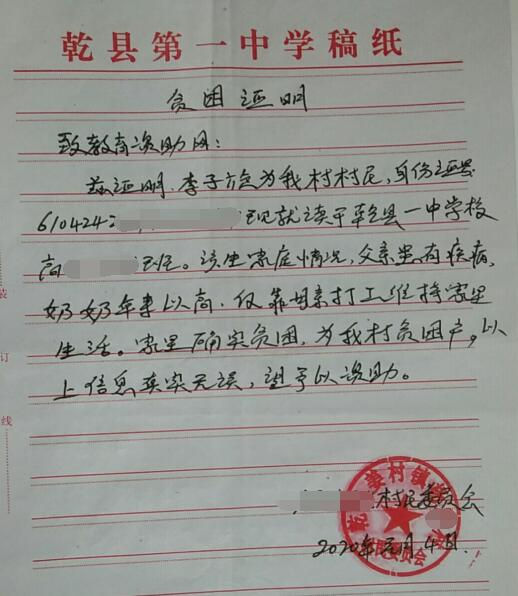 乾县第一中学稿纸
贫困证明
致教育资助网:
兹证明,李子杰为我村村民,身份证号
610424 现就读于乾县一中学校
高 班。该生家庭情况,父亲患有疾病,
奶奶年事以高,仅靠母亲打工维持家里
生活。家里确实贫困,为我村贫困户,以
上信息真实无误,望予以资助。
村民委员会
2020年 月4日.
乾 姜村镇
民委员会
装
订
线